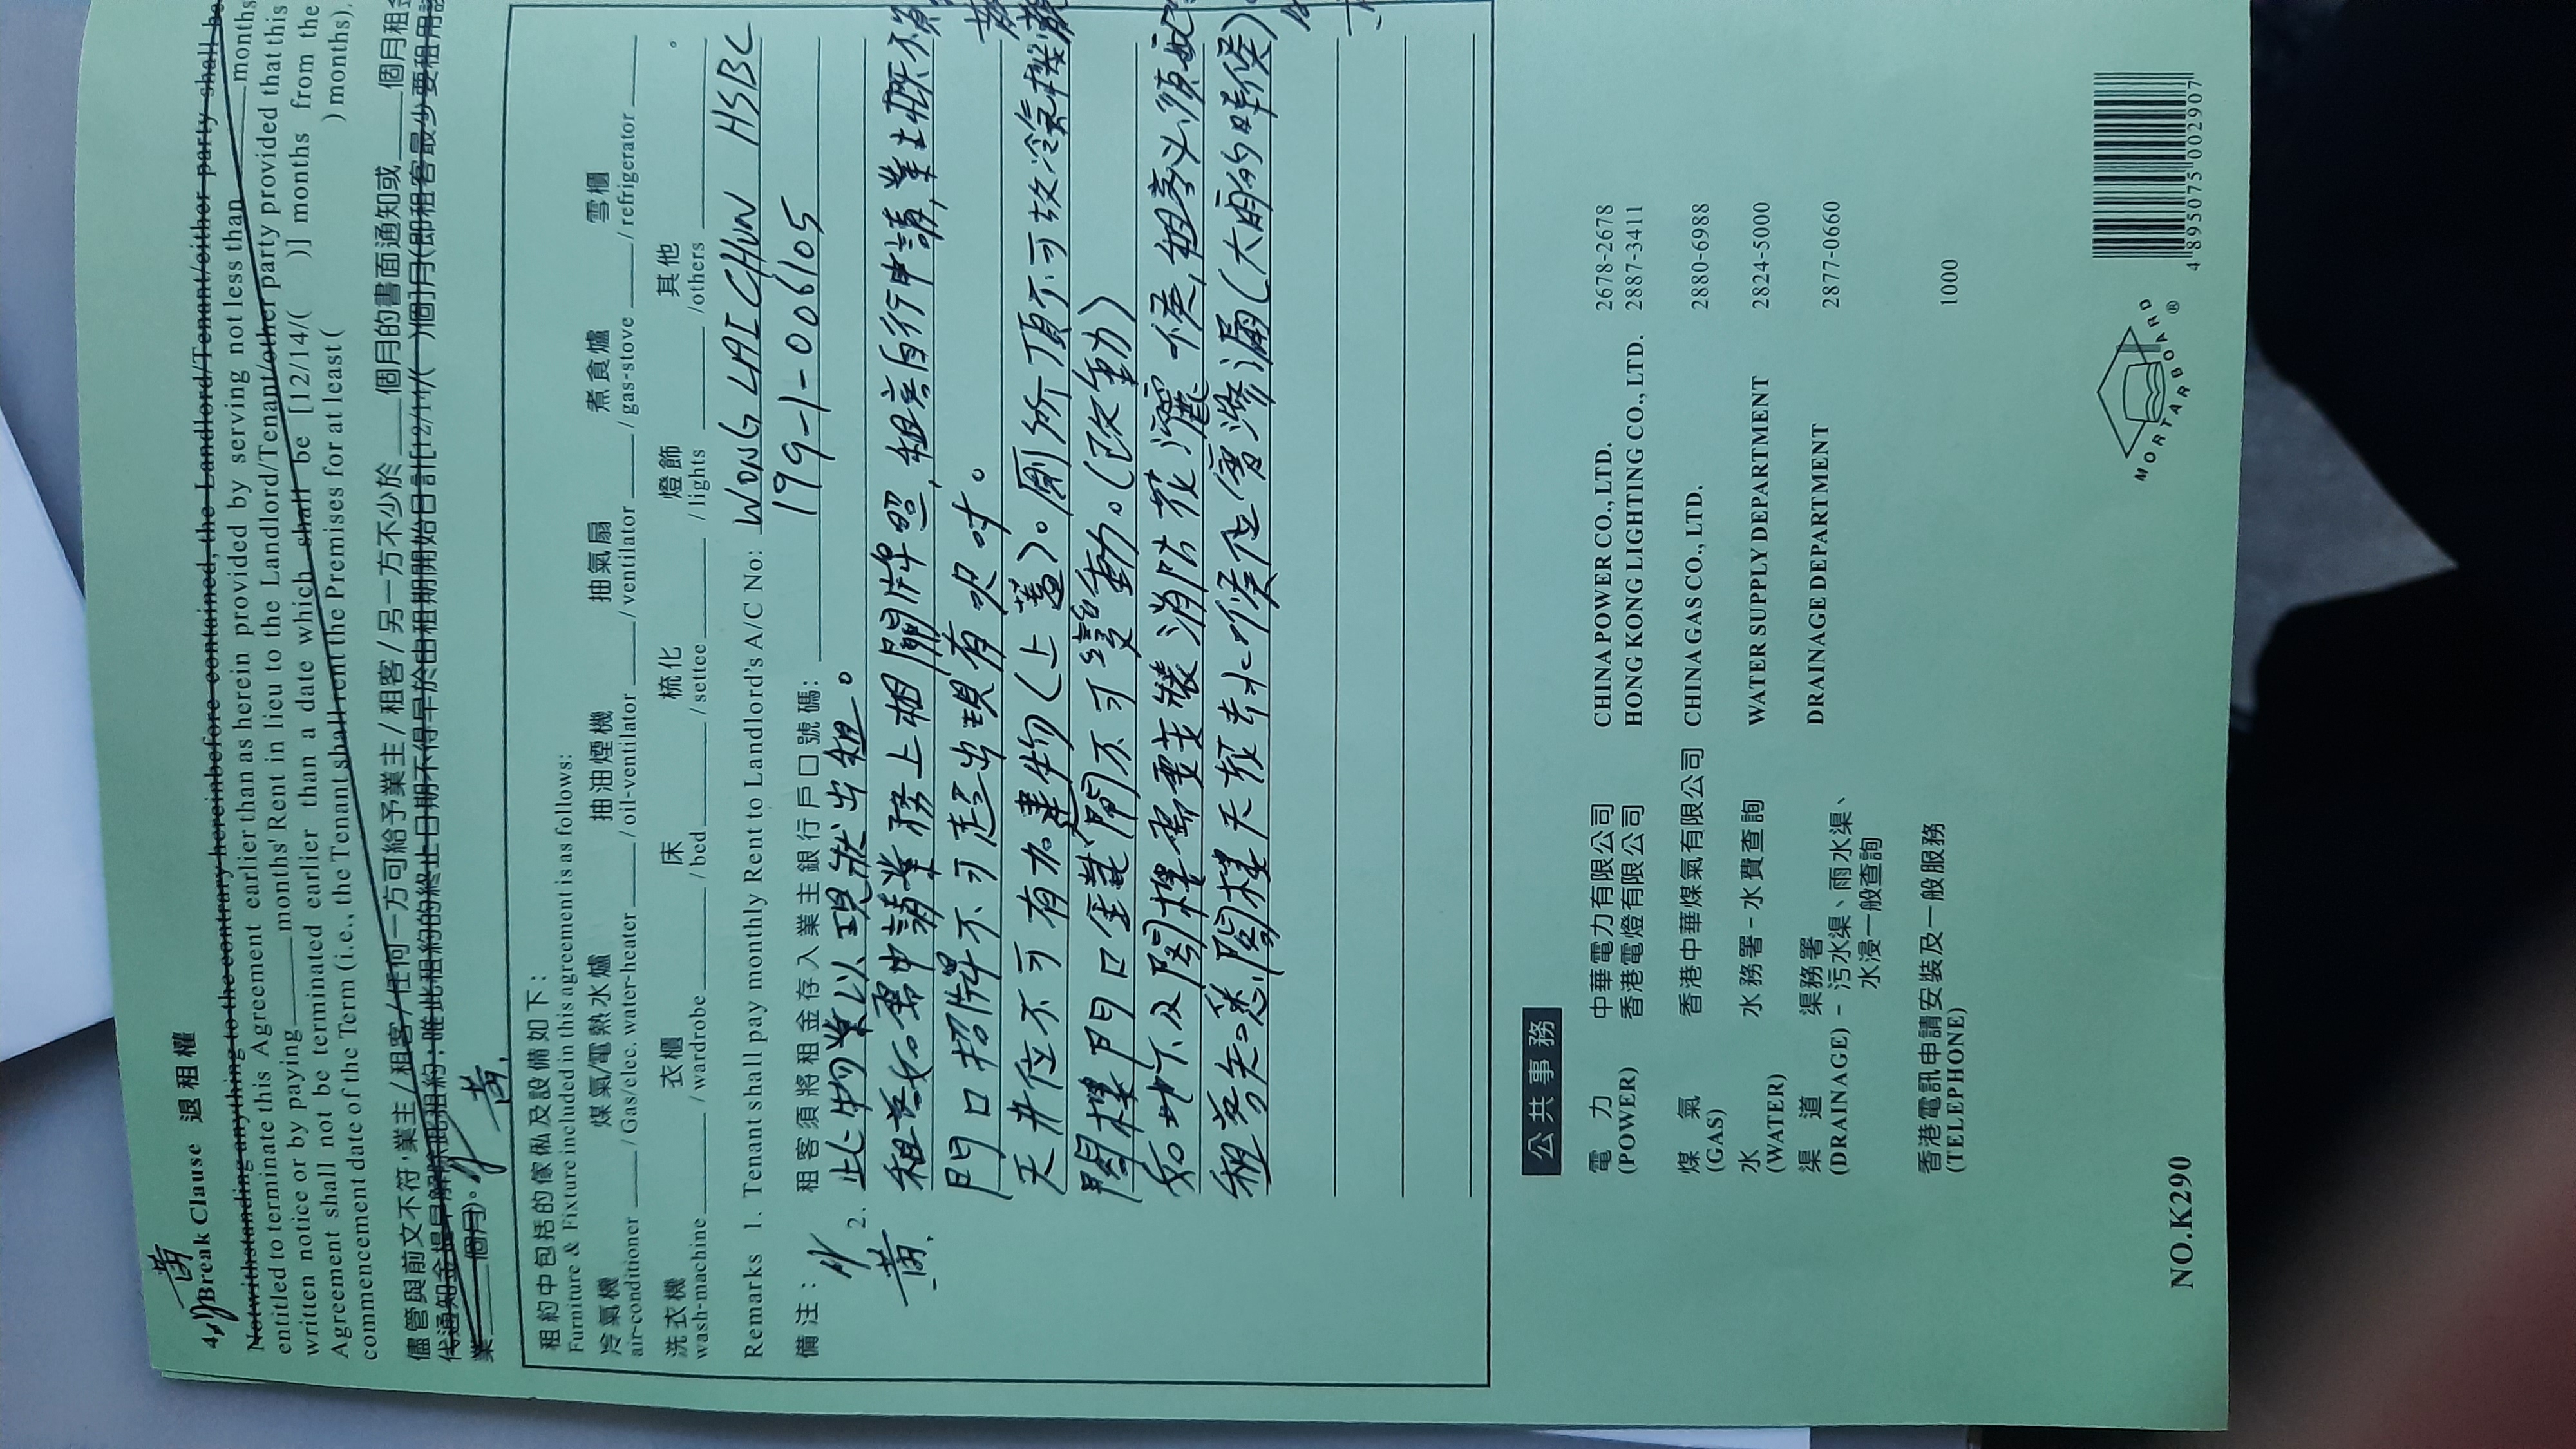 黃
4. Break Clause 退租權
Notwithstanding anything to the contrary hereinbefore contained, the Landlord/Tenant/either party shall be
entitled to terminate this Agreement earlier than as herein provided by serving not less than ____ months
written notice or by paying ____ months' Rent in lieu to the Landlord/Tenant/other party provided that this
Agreement shall not be terminated earlier than a date which shall be [12/14/( )] months from the
commencement date of the Term (i.e., the Tenant shall rent the Premises for at least ( ) months).
儘管與前文不符，業主/租客/任何一方可給予業主/租客/另一方不少於____個月的書面通知或____個月租金
代通知金提早解除此租約；唯此租約的終止日期不得早於由租期開始日計[12/14/( )個]月(即租客最少要租用該
業____個月)。
黃
租約中包括的傢俬及設備如下：
Furniture & Fixture included in this agreement is as follows:
冷氣機 煤氣/電熱水爐 抽油煙機 抽氣扇 煮食爐 雪櫃
air-conditioner ____ / Gas/elec. water-heater ____ / oil-ventilator ____ / ventilator ____ / gas-stove ____ / refrigerator ____
洗衣機 衣櫃 床 梳化 燈飾 其他
wash-machine ____ / wardrobe ____ / bed ____ / settee ____ / lights ____ / others ____ 。
Remarks 1. Tenant shall pay monthly Rent to Landlord's A/C No: WONG LAI CHUN HSBC
備注： 租客須將租金存入業主銀行戶口號碼： 199-1-006105
2. 此物業以現狀出租。
黃
租客如需申請業務上相關牌照，租客自行申請，業主概不負
門口招牌不可超出現有呎吋。
天井位不可有加建物(上蓋)。廁所頂不可放冷氣
閣樓門口鐵閘不可變動。(改動)
如地下及閣樓需要裝消防花灑，租客必須配
租客知悉閣樓天花滲漏(大雨的時候)
公共事務
電力 中華電力有限公司 CHINA POWER CO., LTD. 2678-2678
(POWER) 香港電燈有限公司 HONG KONG LIGHTING CO., LTD. 2887-3411
煤氣 香港中華煤氣有限公司 CHINA GAS CO., LTD. 2880-6988
(GAS)
水 水務署－水費查詢 WATER SUPPLY DEPARTMENT 2824-5000
(WATER)
渠道 渠務署 DRAINAGE DEPARTMENT 2877-0660
(DRAINAGE) －污水渠、雨水渠、
水浸一般查詢
香港電訊申請安裝及一般服務 1000
(TELEPHONE)
NO.K290
MORTARBOARD ®
4 895075 002907